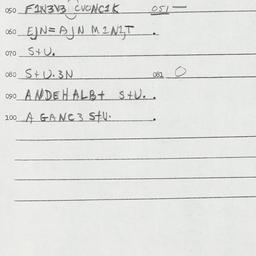 050 F1N3V3 CVONC1K 051 —
060 EJN = AJN M1N1T .
070 S+U.
080 S+U.3N 081 O
090 ANDEHALB+ S+U. .
100 A GANC3 S+U. .